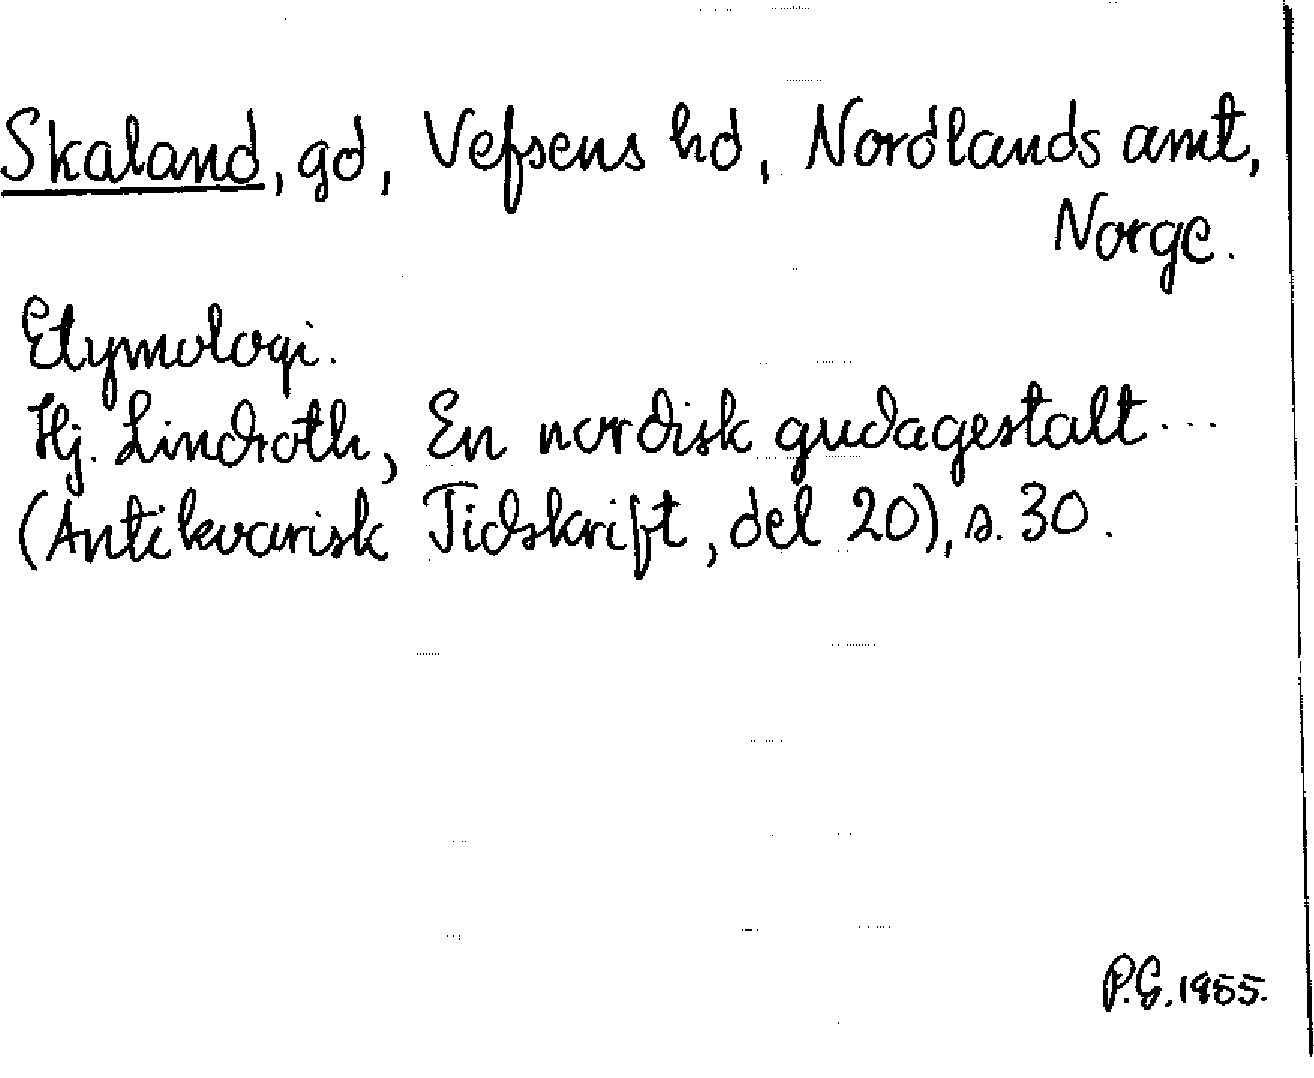 Skaland, gd, Vefsens hd, Nordlands amt,
Norge.
Etymologi.
Hj. Lindroth, En nordisk gudagestalt ...
(Antikvarisk Tidskrift, del 20), s. 30.
P.G. 1955.